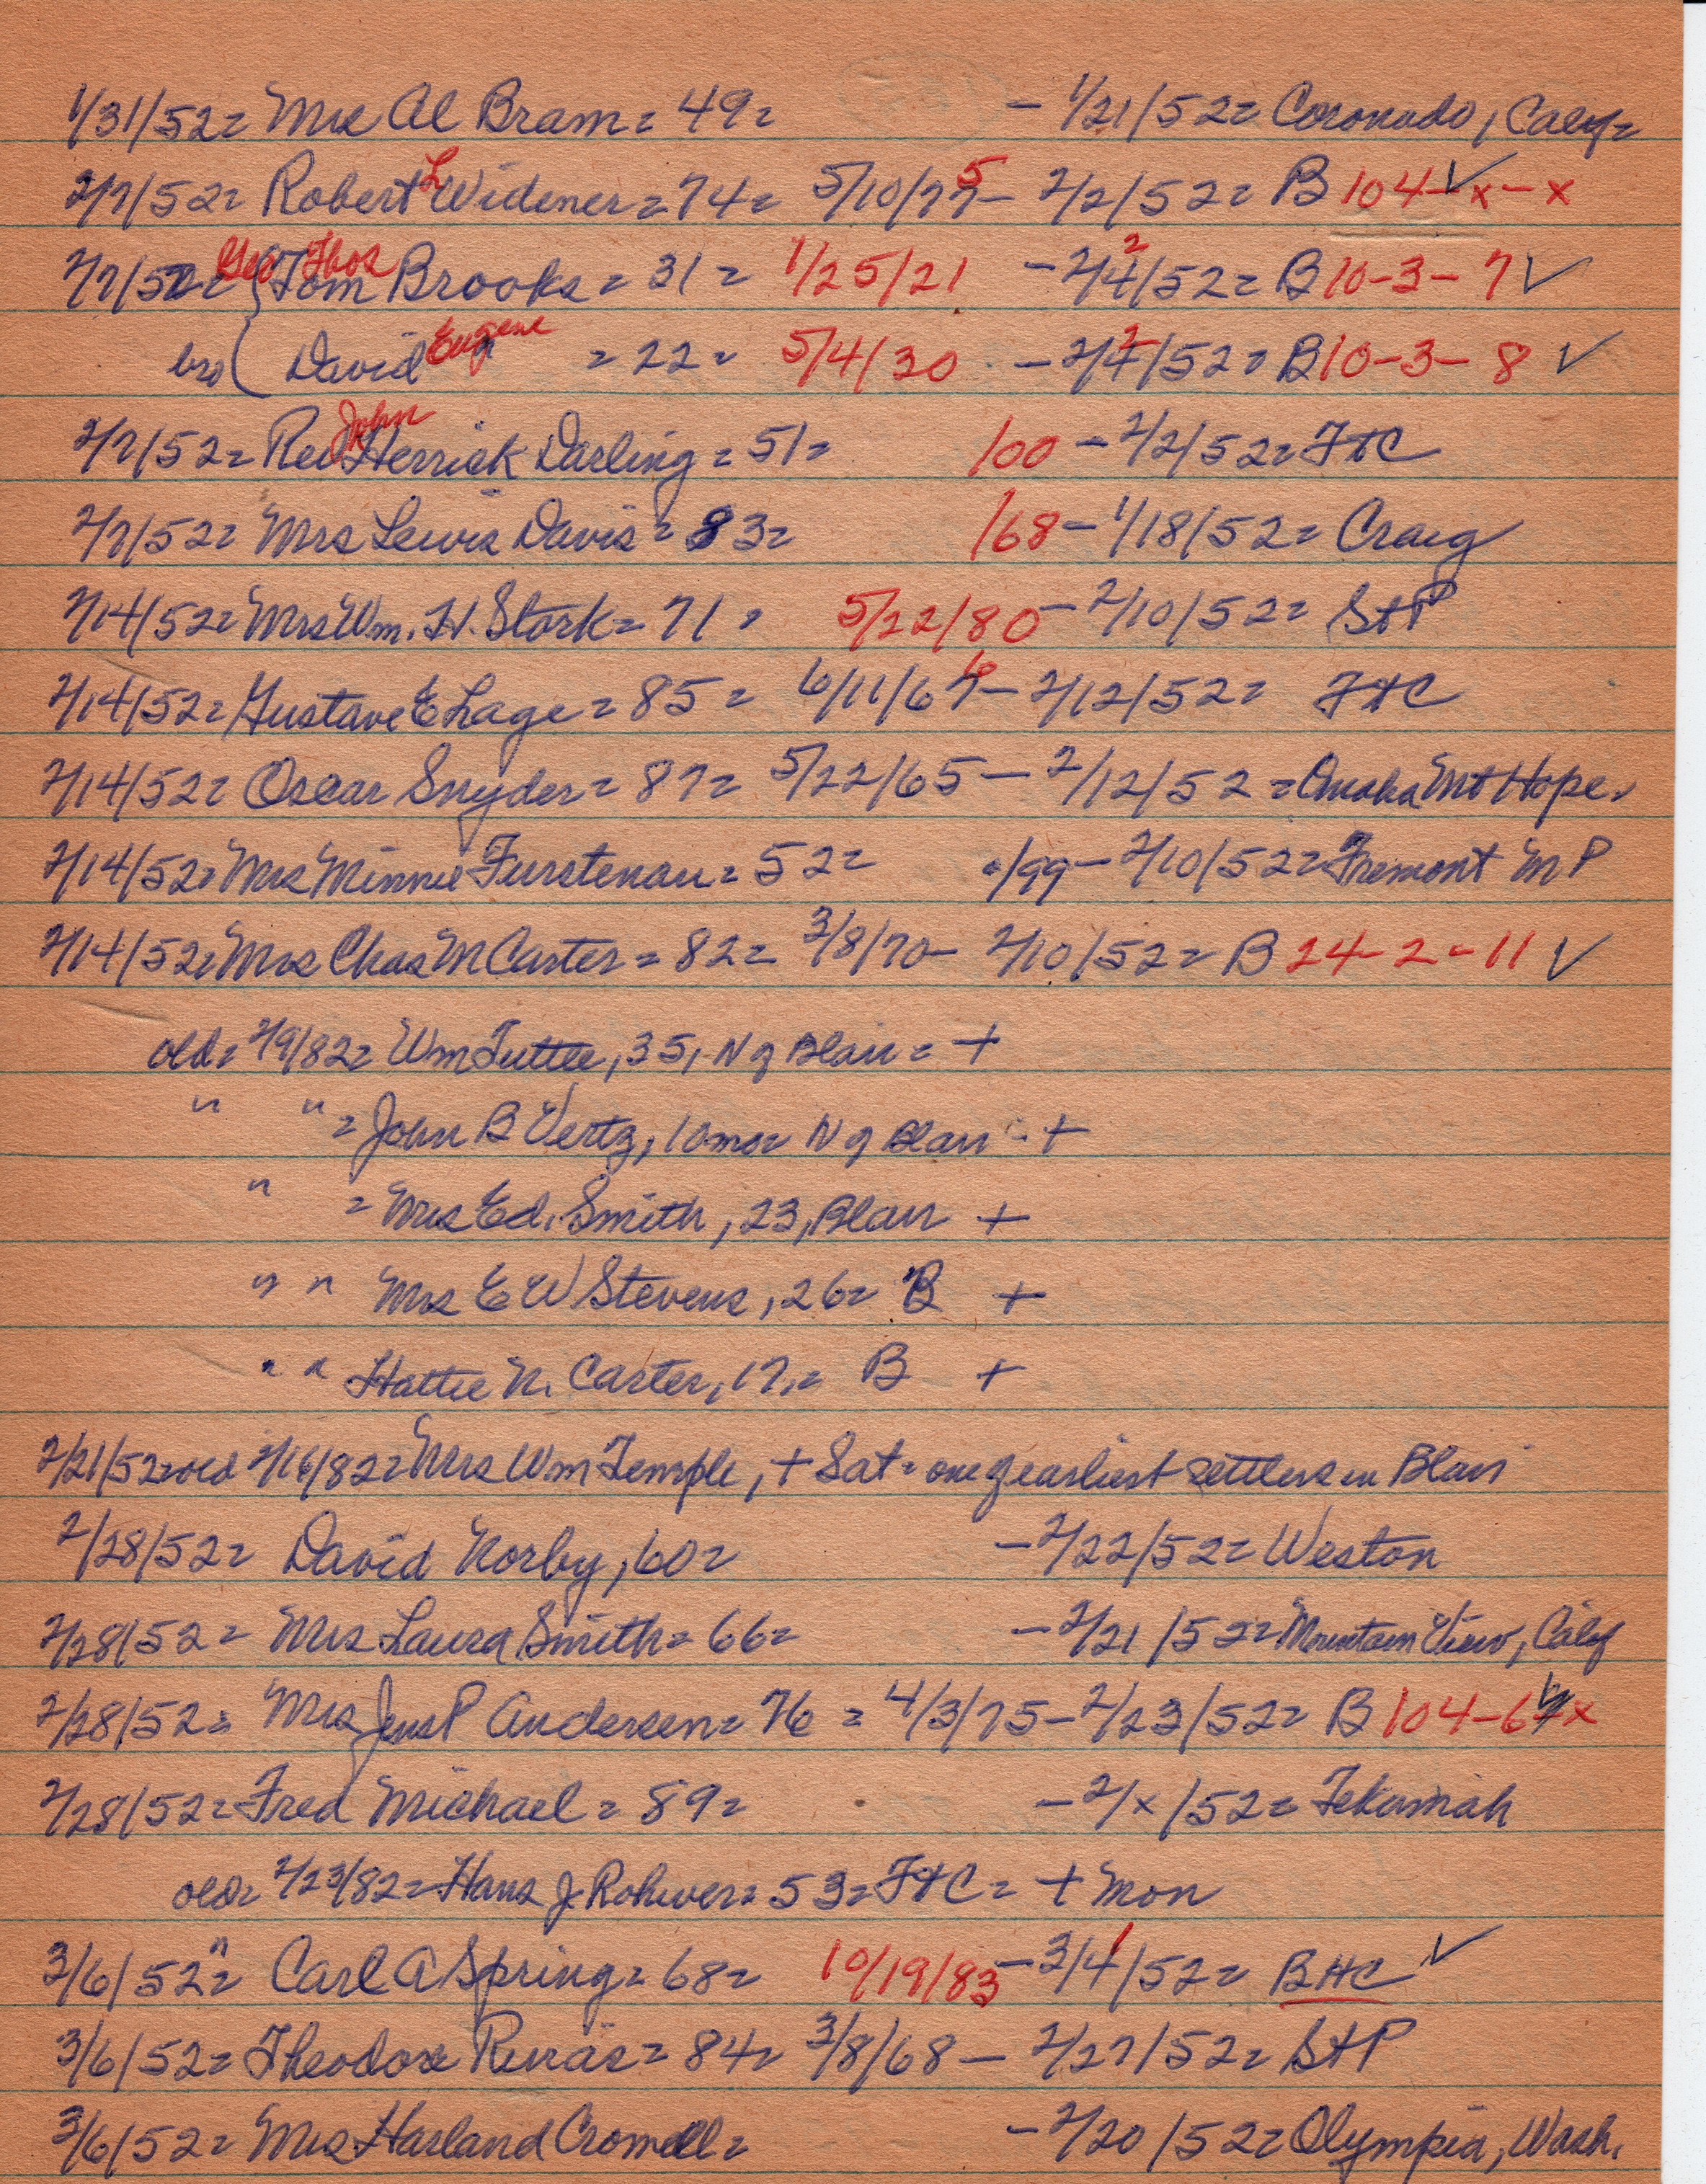 1/31/52= Mrs Al Bram= 49= - 1/21/52= Coronado, Calif=
2/7/52= Robert L Widener= 74= 5/10/77 5 - 2/2/52= B 104-x-x ✓
2/7/52= Geo Thos Tom Brooks= 31= 1/25/21 - 2/4 2/52= B 10-3-7 ✓
bro ( David Eugene = 22= 5/4/30 - 2/4 2/52= B 10-3-8 ✓
2/7/52= Rev John Herrick Darling= 51= /00 - 2/2/52= FtC
2/7/52= Mrs Lewis Davis= 83= /68 - 1/18/52= Craig
2/14/52= Mrs Wm. H. Stork= 71= 5/22/80 - 2/10/52= StP
2/14/52= Gustave E Lage= 85= 6/11/67 6 - 2/12/52= FtC
2/14/52= Oscar Snyder= 87= 5/22/65 - 2/12/52= Omaha Mt Hope.
2/14/52= Mrs Minnie Furstenau= 52= /99 - 2/10/52= Fremont MP
2/14/52= Mrs Chas M Carter= 82= 3/8/70 - 2/10/52= B 24-2-11 ✓
old= 2/9/82= Wm Tuttle, 35, N of Blair= +
" " = John B Vertz, 10mo= N of Blair +
" = Mrs Ed. Smith, 23, Blair +
" " Mrs E W Stevens, 26= B +
" " Hattie N. Carter, 17,= B +
2/21/52= old 2/16/82= Mrs Wm Temple, + Sat= one of earliest settlers in Blair
2/28/52= David Norby, 60= - 2/22/52= Weston
2/28/52= Mrs Laura Smith= 66= - 2/21/52= Mountain View, Calif
2/28/52= Mrs Jens P Andersen= 76= 4/3/75 - 2/23/52= B 104-6-x ✓
2/28/52= Fred Michael= 89= - 2/x/52= Tekamah
old= 2/23/82= Hans J Rohwer= 53= FtC= + Mon
3/6/52"= Carl A Spring= 68= 10/19/83 - 3/4 1/52= BHC ✓
3/6/52= Theodore 84= 3/8/68 - 2/27/52= StP
3/6/52= Mrs Harland Cromwell= - 2/20/52= Olympia, Wash.